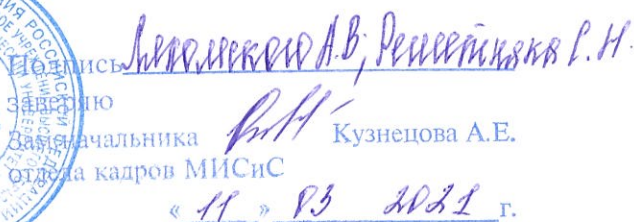 Подпись Ляхомского А.В; Решетняка С.Н.
заверяю
Зам. начальника Кузнецова А.Е.
отдела кадров МИСиС
« 11 » 03 2021 г.